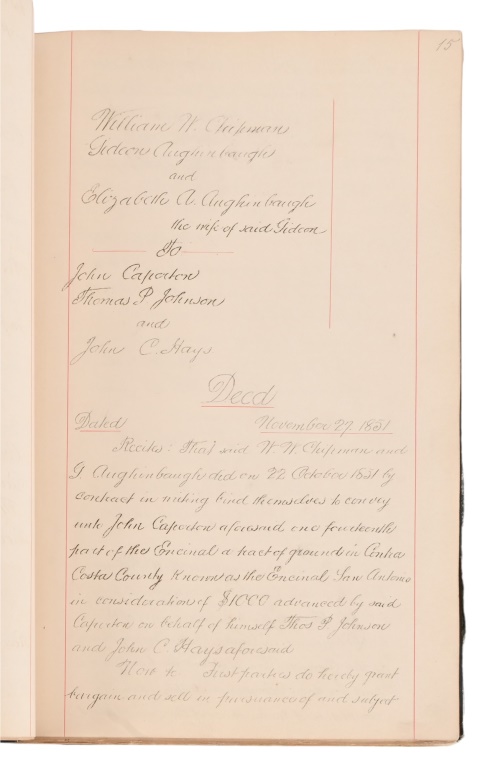 15
William W. Chipman
Gideon Aughinbaugh
and
Elizabeth A. Aughinbaugh
the wife of said Gideon
To
John Caperton
Thomas P Johnson
and
John C. Hays
Deed
Dated November 27, 1851
Recites: That said W. W. Chipman and
G. Aughinbaugh did on 22 October 1851 by
contract in writing bind themselves to convey
unto John Caperton aforesaid one fourteenth
part of the Encinal a tract of ground in Contra
Costa County Known as the Encinal San Antonio
in consideration of $1000 advanced by said
Caperton on behalf of himself Thos P Johnson
and John C Hays aforesaid
Now &c First parties do hereby grant
bargain and sell in pursuance of and subject